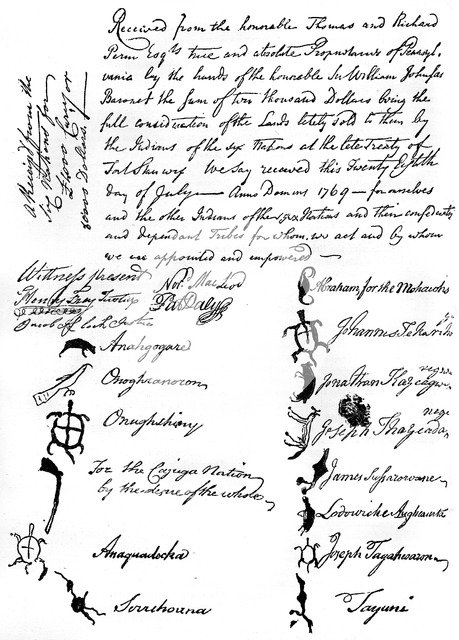 Received from the honorable Thomas and Richard
Penn Esqrs true and absolute Proprietaries of Pensyl-
vania by the hands of the honorable Sr William Johnson
Baronet the Sum of ten thousand Dollars being the
full consideration of the Lands lately sold to them by
the Indians of the six Nations at the late treaty of
Fort Stanwix We say received this Twenty Eighth
day of July — Anno Domini 1769 — for ourselves
and the other Indians of the six Nations and their confederates
and dependant Tribes for whom we act and by whom
we are appointed and empowered —
a Receipt from the
Six Nations for
Dollars
Witness present
Norl. MacLeod
Abraham for the Mohawks
Johannes
Anahgogare
Jonathan
Onoghranorum
Joseph
Onughshiny
For the Cajuga Nation
by the desire of the whole
James Suparowane
Lodowicke
Anaquadecka
Joseph Tagahwaron
Serrehoana
Tayuni